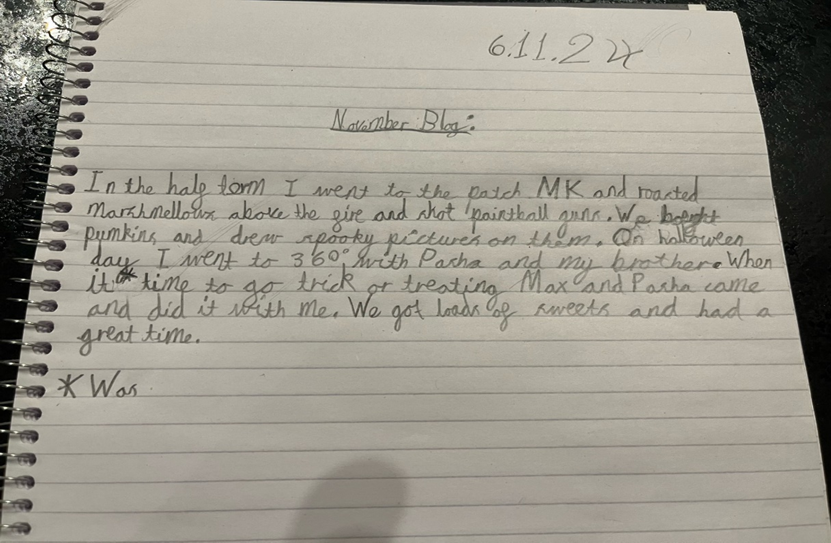 6.11.24
November Blog:
In the half term I went to the patch MK and roasted
Marshmellows above the fire and shot paintball guns. We bought
pumkins and drew spooky pictures on them. On halloween
day I went to 360° with Pasha and my brother. When
it * time to go trick or treating Max and Pasha came
and did it with me. We got loads of sweets and had a
great time.
* Was